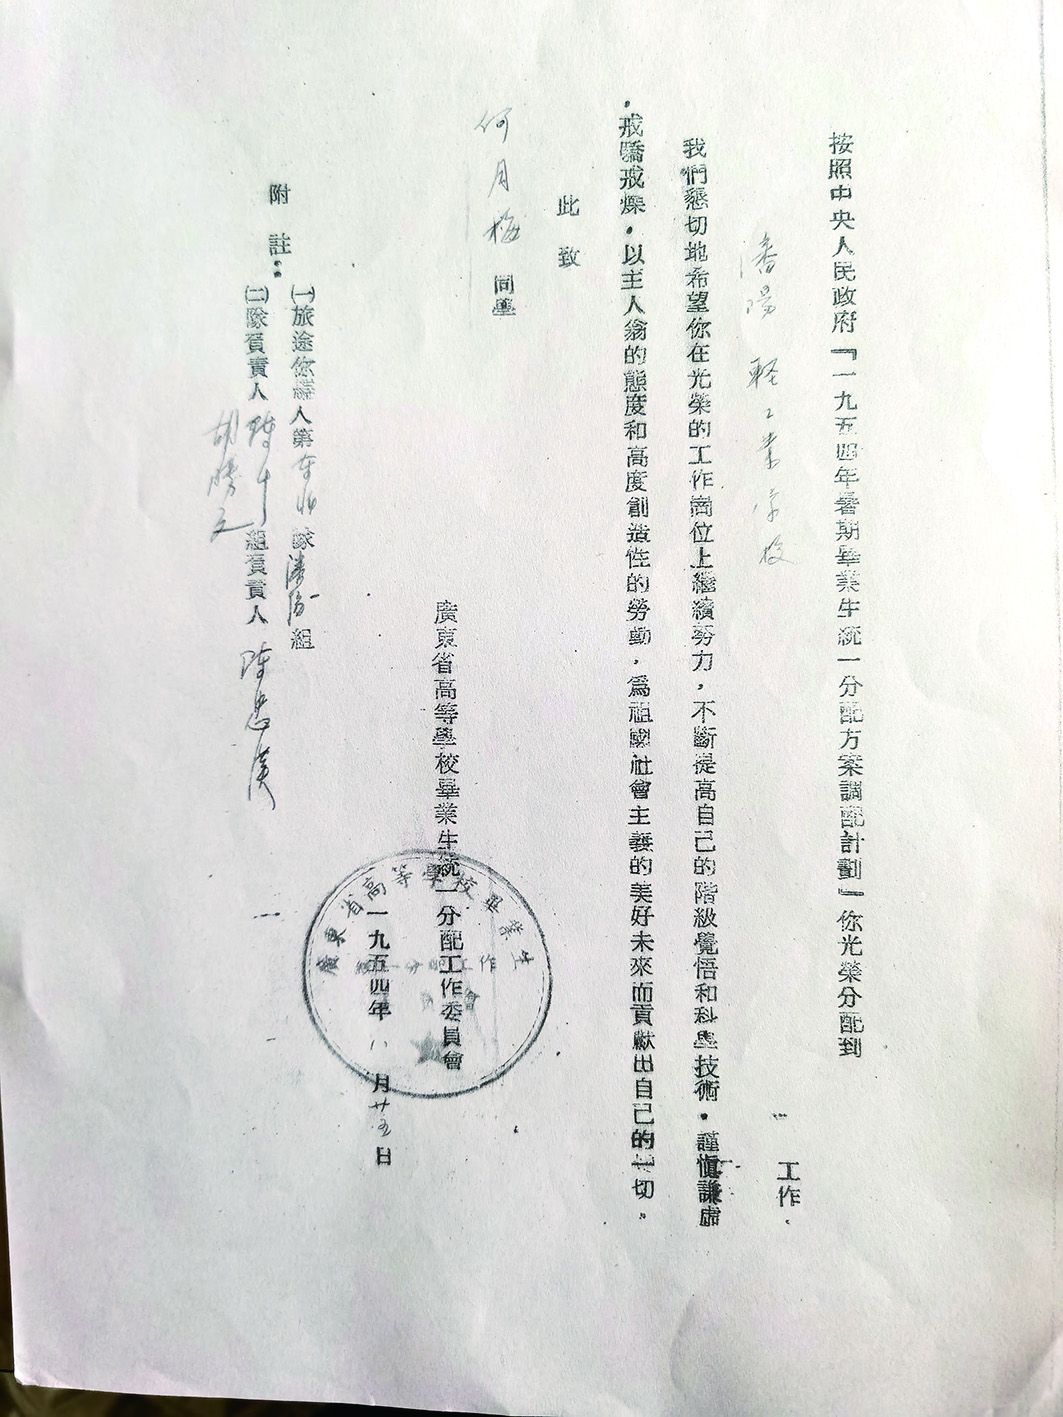 按照中央人民政府『一九五四年暑期畢業生統一分配方案調配計劃』你光榮分配到
瀋陽輕工業学校 工作．
我們懇切地希望你在光榮的工作崗位上繼續努力，不斷提高自己的階級覺悟和科學技術．謹慎謙虛
．戒驕戒燥．以主人翁的態度和高度創造性的勞動，爲祖國社會主義的美好未來而貢獻出自己的一切。
此致
何月梅 同學
廣東省高等學校畢業生統一分配工作委員會
廣東省高等學校畢業生
統一分配工作
一九五四年 八 月 廿五 日
附註：
㈠旅途你編入第 东北 隊 瀋陽 組
㈡隊負責人 組負責人 陈忠漢